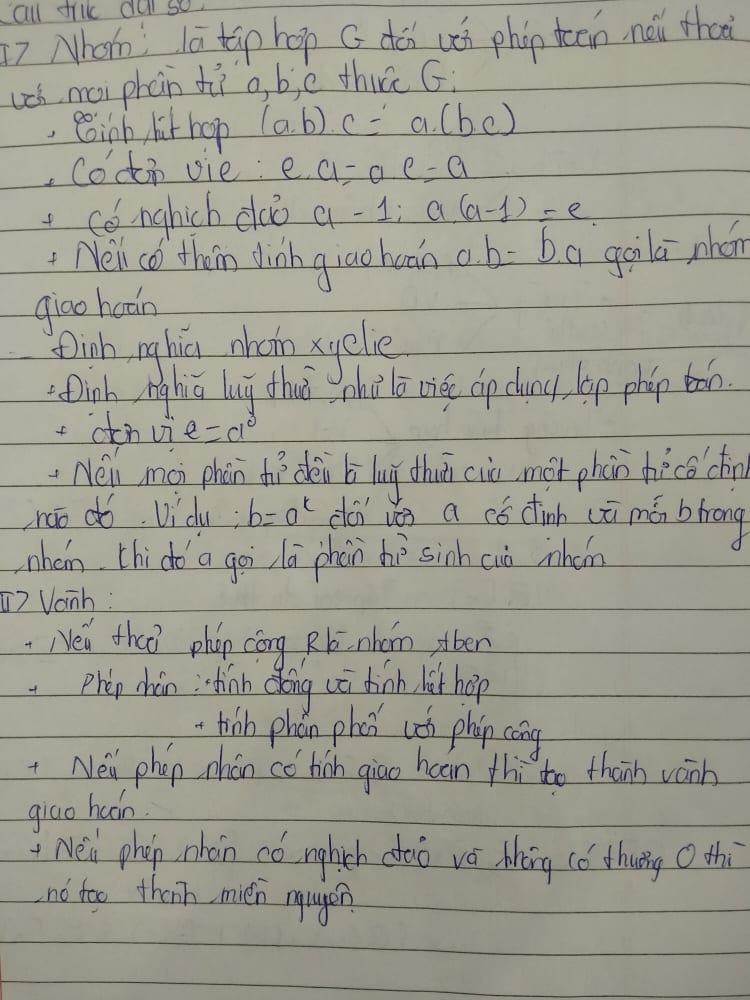 Cấu trúc đại số.
I> Nhóm: là tập hợp G đối với phép toán nếu thoả
với mọi phần tử a, b, c thuộc G:
+ Tính kết hợp (a.b).c = a.(b.c)
+ Có đơn vị e: e.a = a.e = a
+ có nghịch đảo a - 1; a(a-1) = e
+ Nếu có thêm tính giao hoán a.b = b.a gọi là nhóm
giao hoán
- Định nghĩa nhóm xyclic.
+ Định nghĩa luỹ thừa như là việc áp dụng lặp phép toán.
+ đơn vị e = a⁰
+ Nếu mọi phần tử đều là luỹ thừa của một phần tử cố định
nào đó. Ví dụ: b = aᵏ đối với a cố định và mỗi b trong
nhóm. thì đó a gọi là phần tử sinh của nhóm
II> Vành:
+ Nếu thoả phép cộng R là nhóm Aben
+ Phép nhân: + tính đóng và tính kết hợp
+ tính phân phối với phép cộng
+ Nếu phép nhân có tính giao hoán thì tạo thành vành
giao hoán.
+ Nếu phép nhân có nghịch đảo và không có thương 0 thì
nó tạo thành miền nguyên